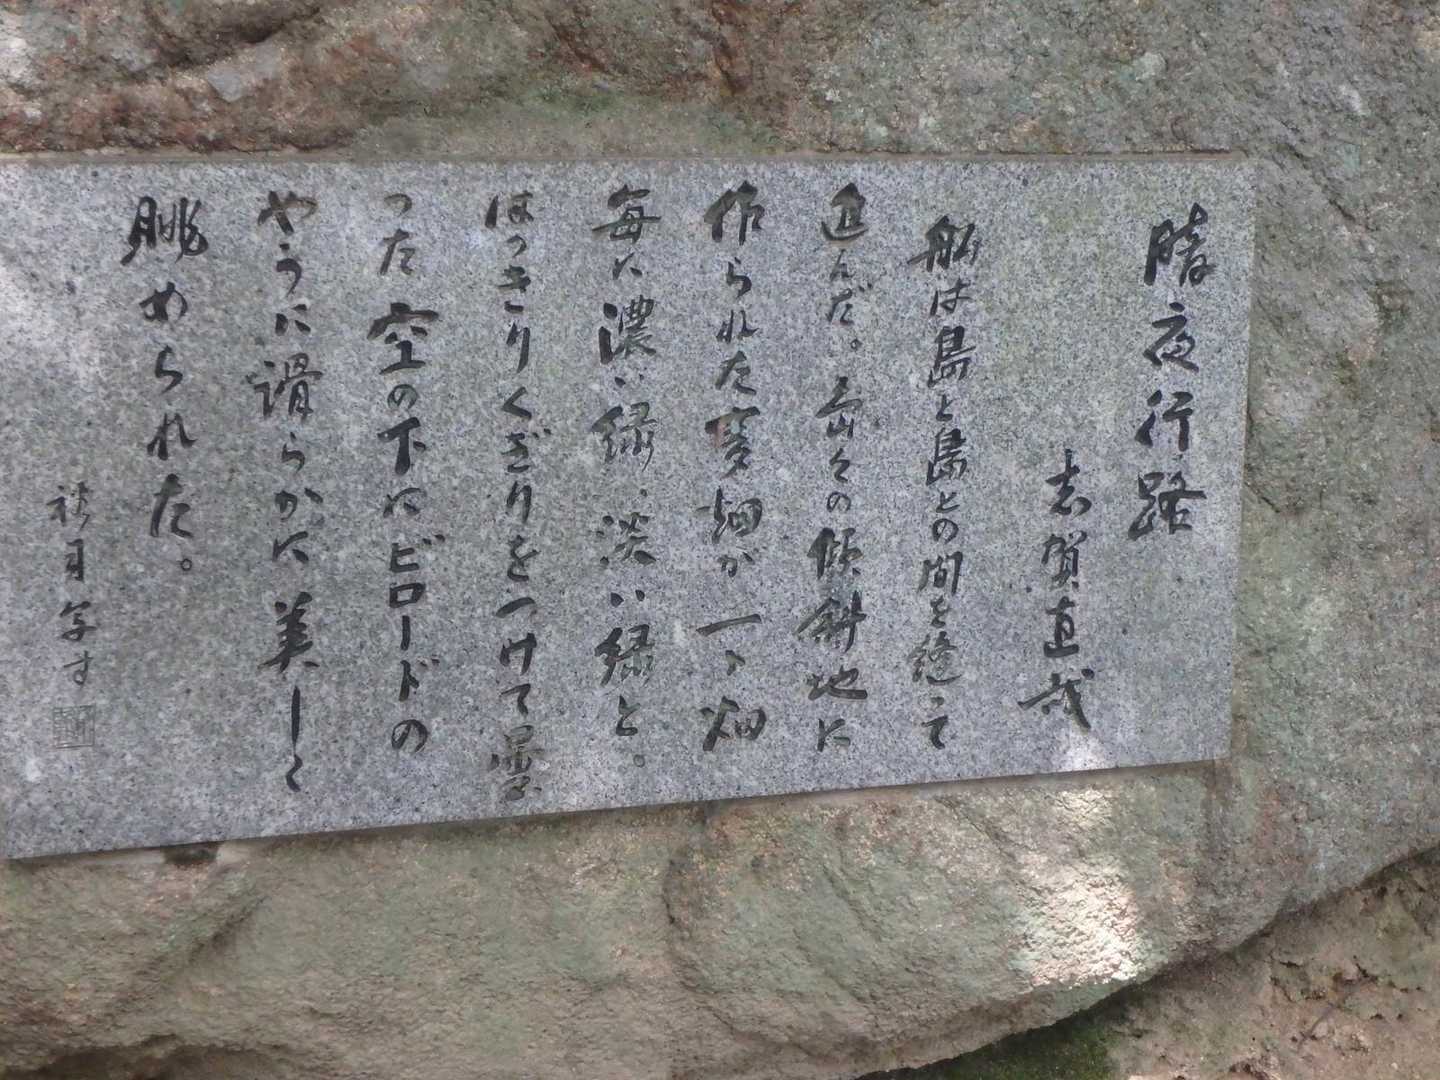 暗夜行路
志賀直哉
船は島と島との間を縫って
進んだ。島々の傾斜地に
作られた麦畑が一ト畑
毎に濃い緑、淡い緑と。
はっきりくぎりをつけて曇
った空の下にビロードの
やうに滑らかに美しく
眺められた。